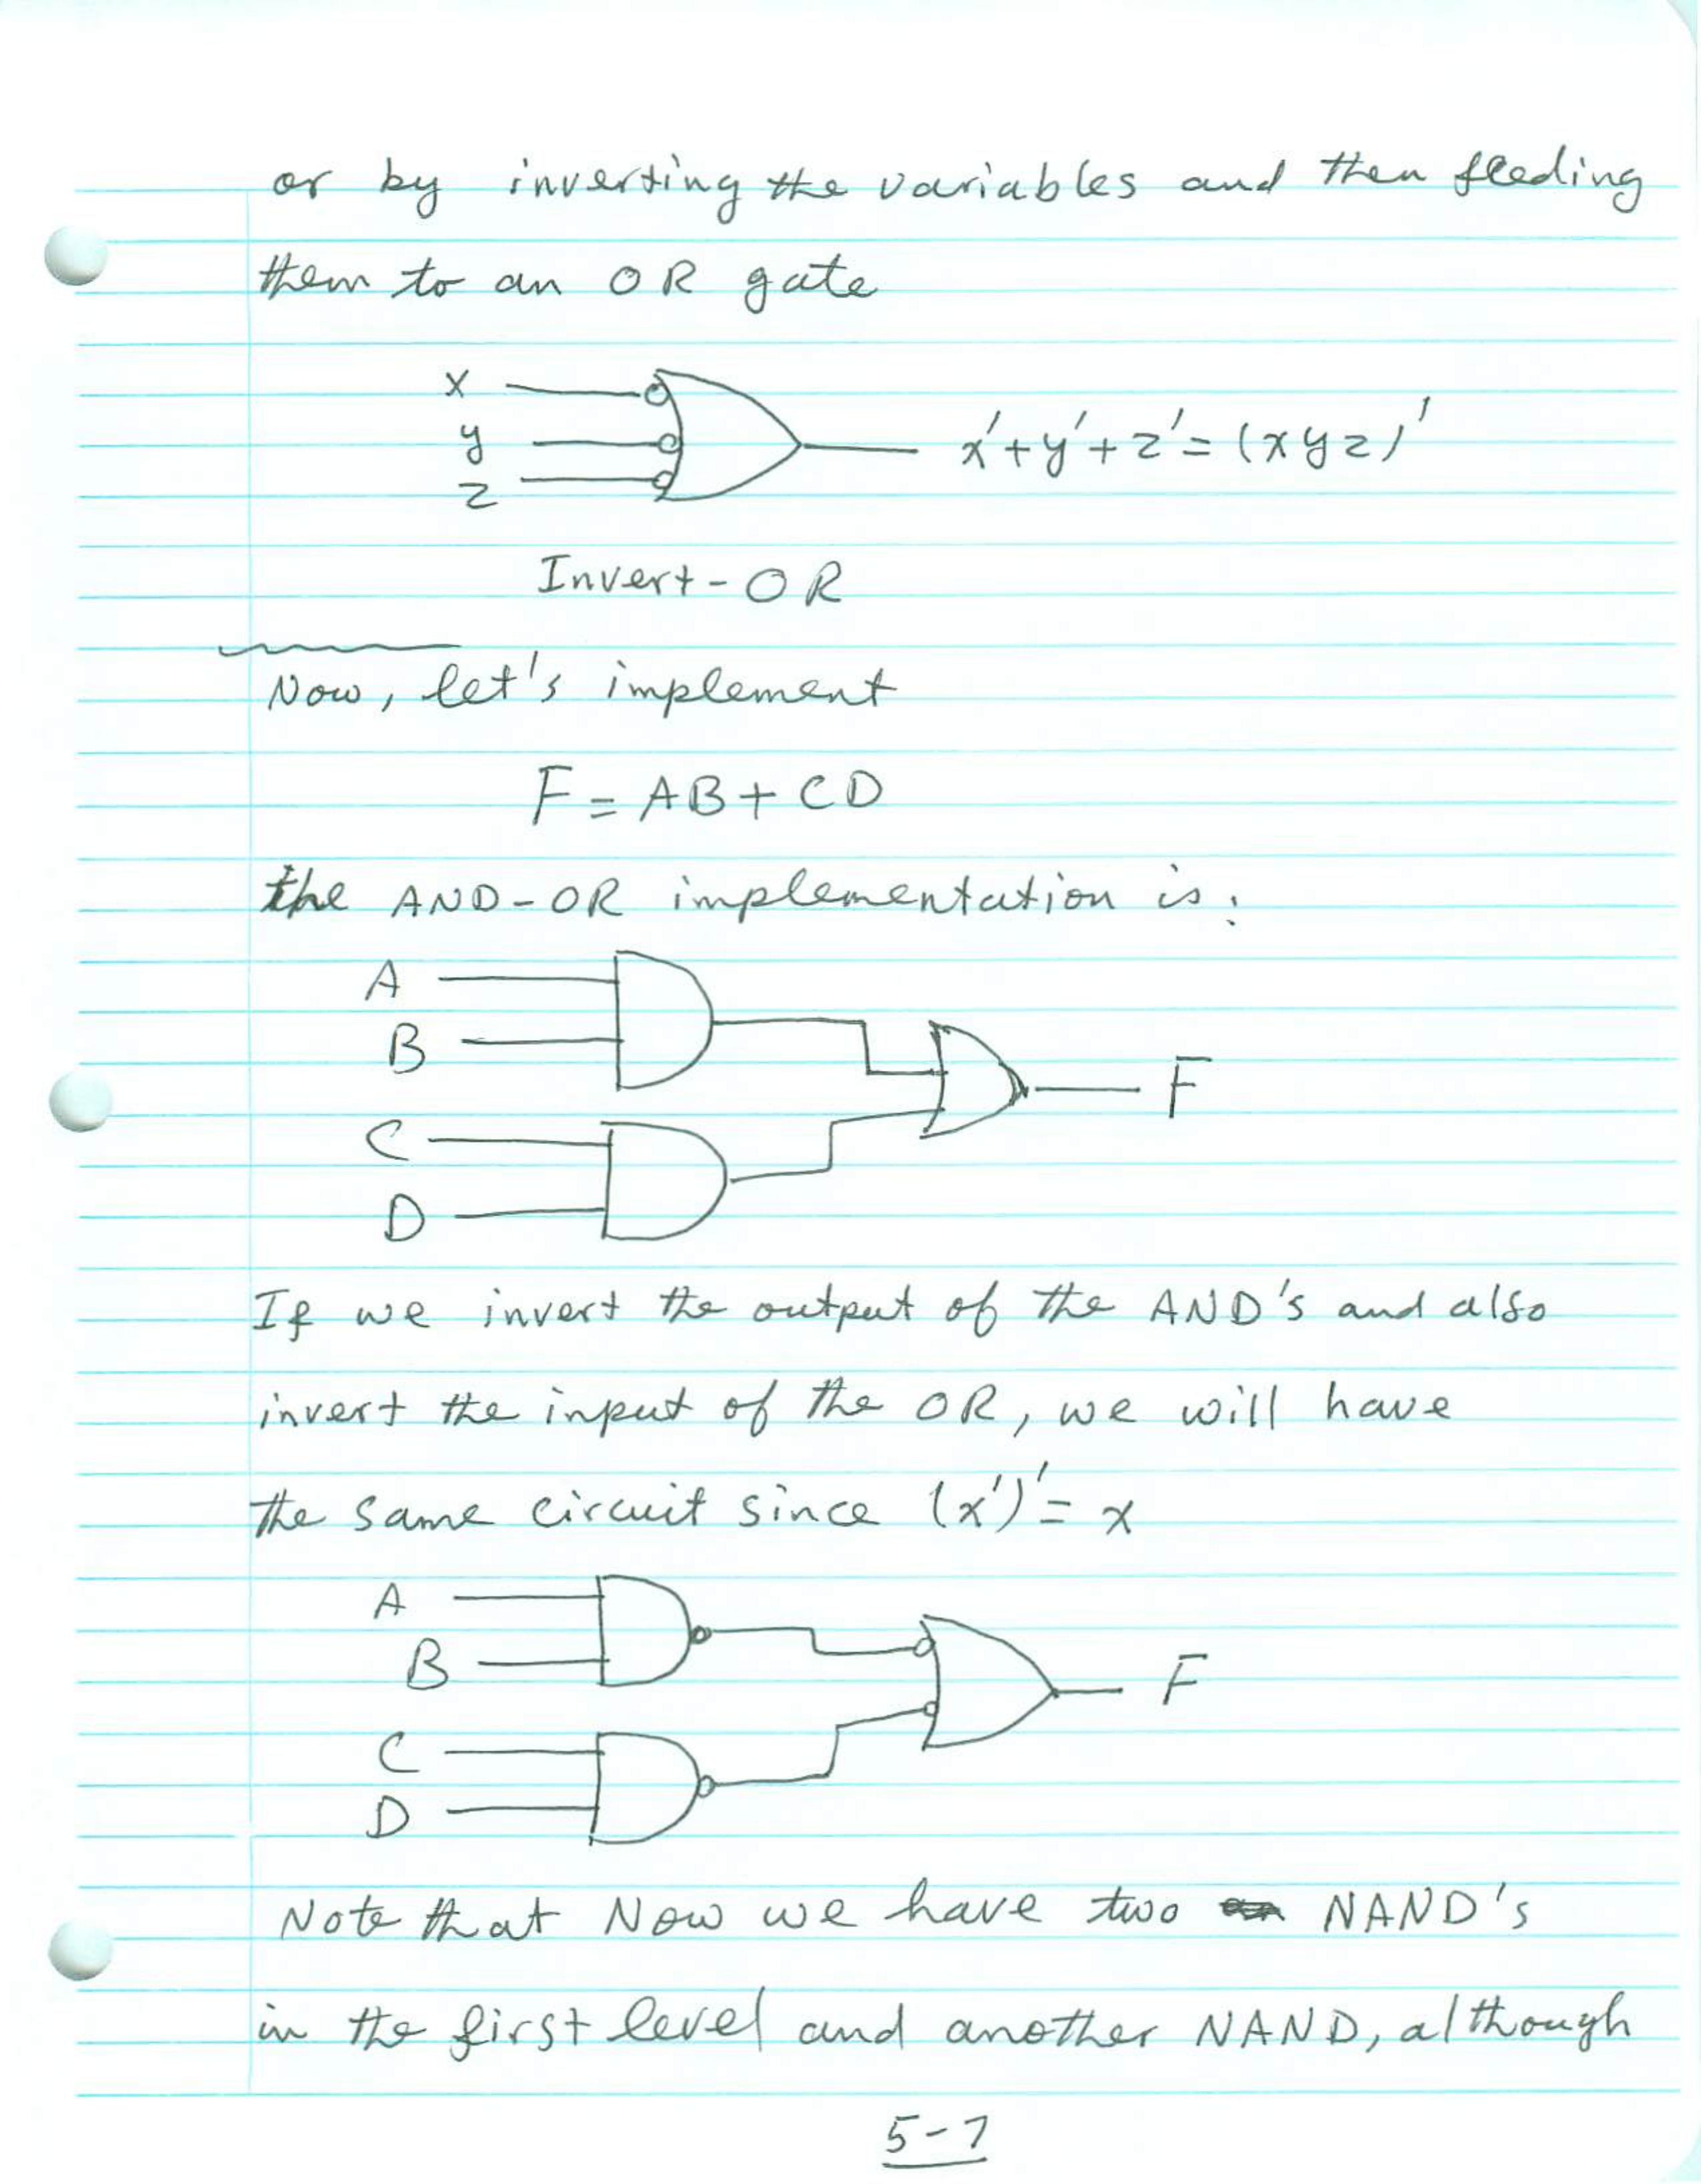 or by inverting the variables and then feeding
them to an OR gate
x
y
z
x'+y'+z'=(xyz)'
Invert-OR
Now, let's implement
F = AB+CD
the AND-OR implementation is:
A
B
F
C
D
If we invert the output of the AND's and also
invert the input of the OR, we will have
the same circuit since (x')'= x
A
B
F
C
D
Note that Now we have two NAND's
in the first level and another NAND, although
5-7